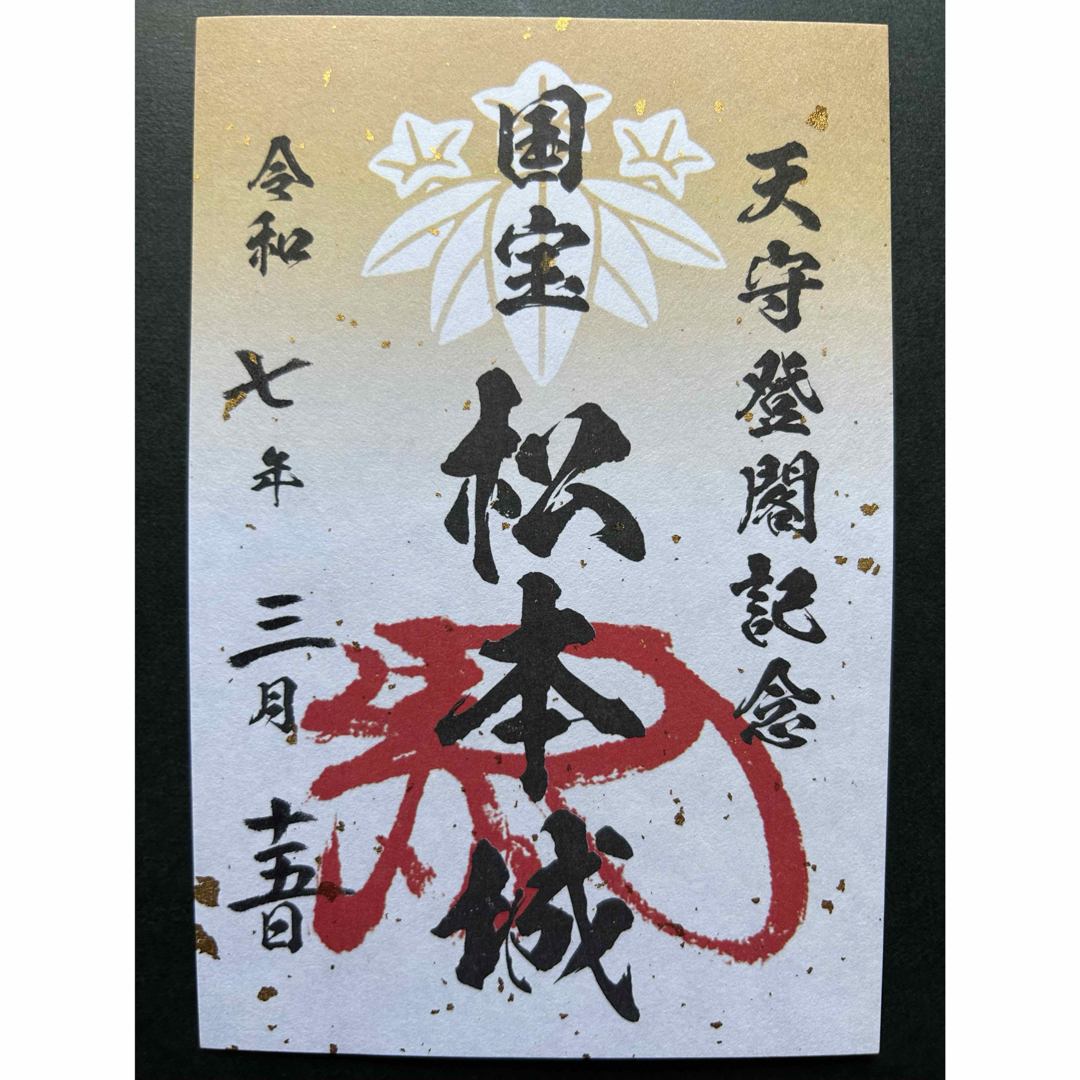 天守登閣記念
国宝 松本城
令和七年 三月 十五日